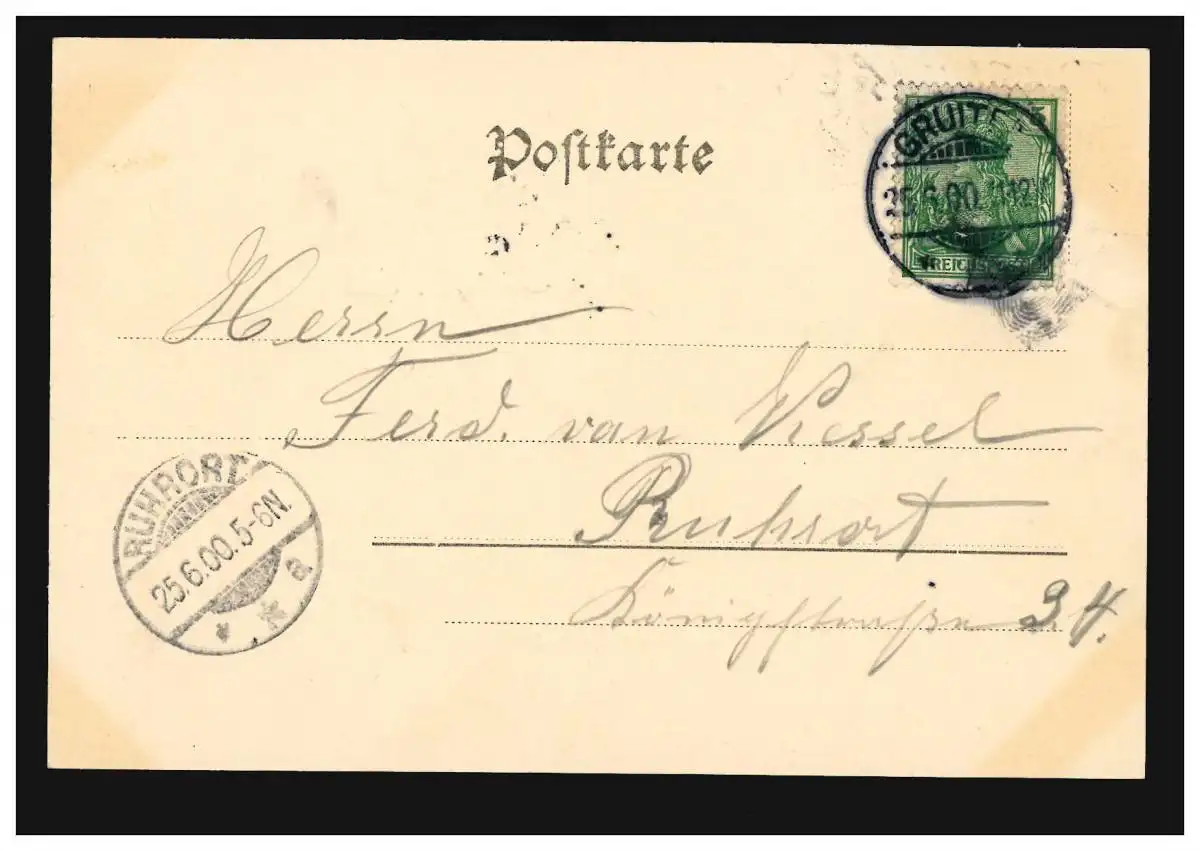 Postkarte
GRUITE
25.6.00. 11-12
5
REICHSPOST
Herrn
Ferd. van Kessel
Ruhrort
Königstraße 34.
RUHRORT
25.6.00.5-6N.
* * a